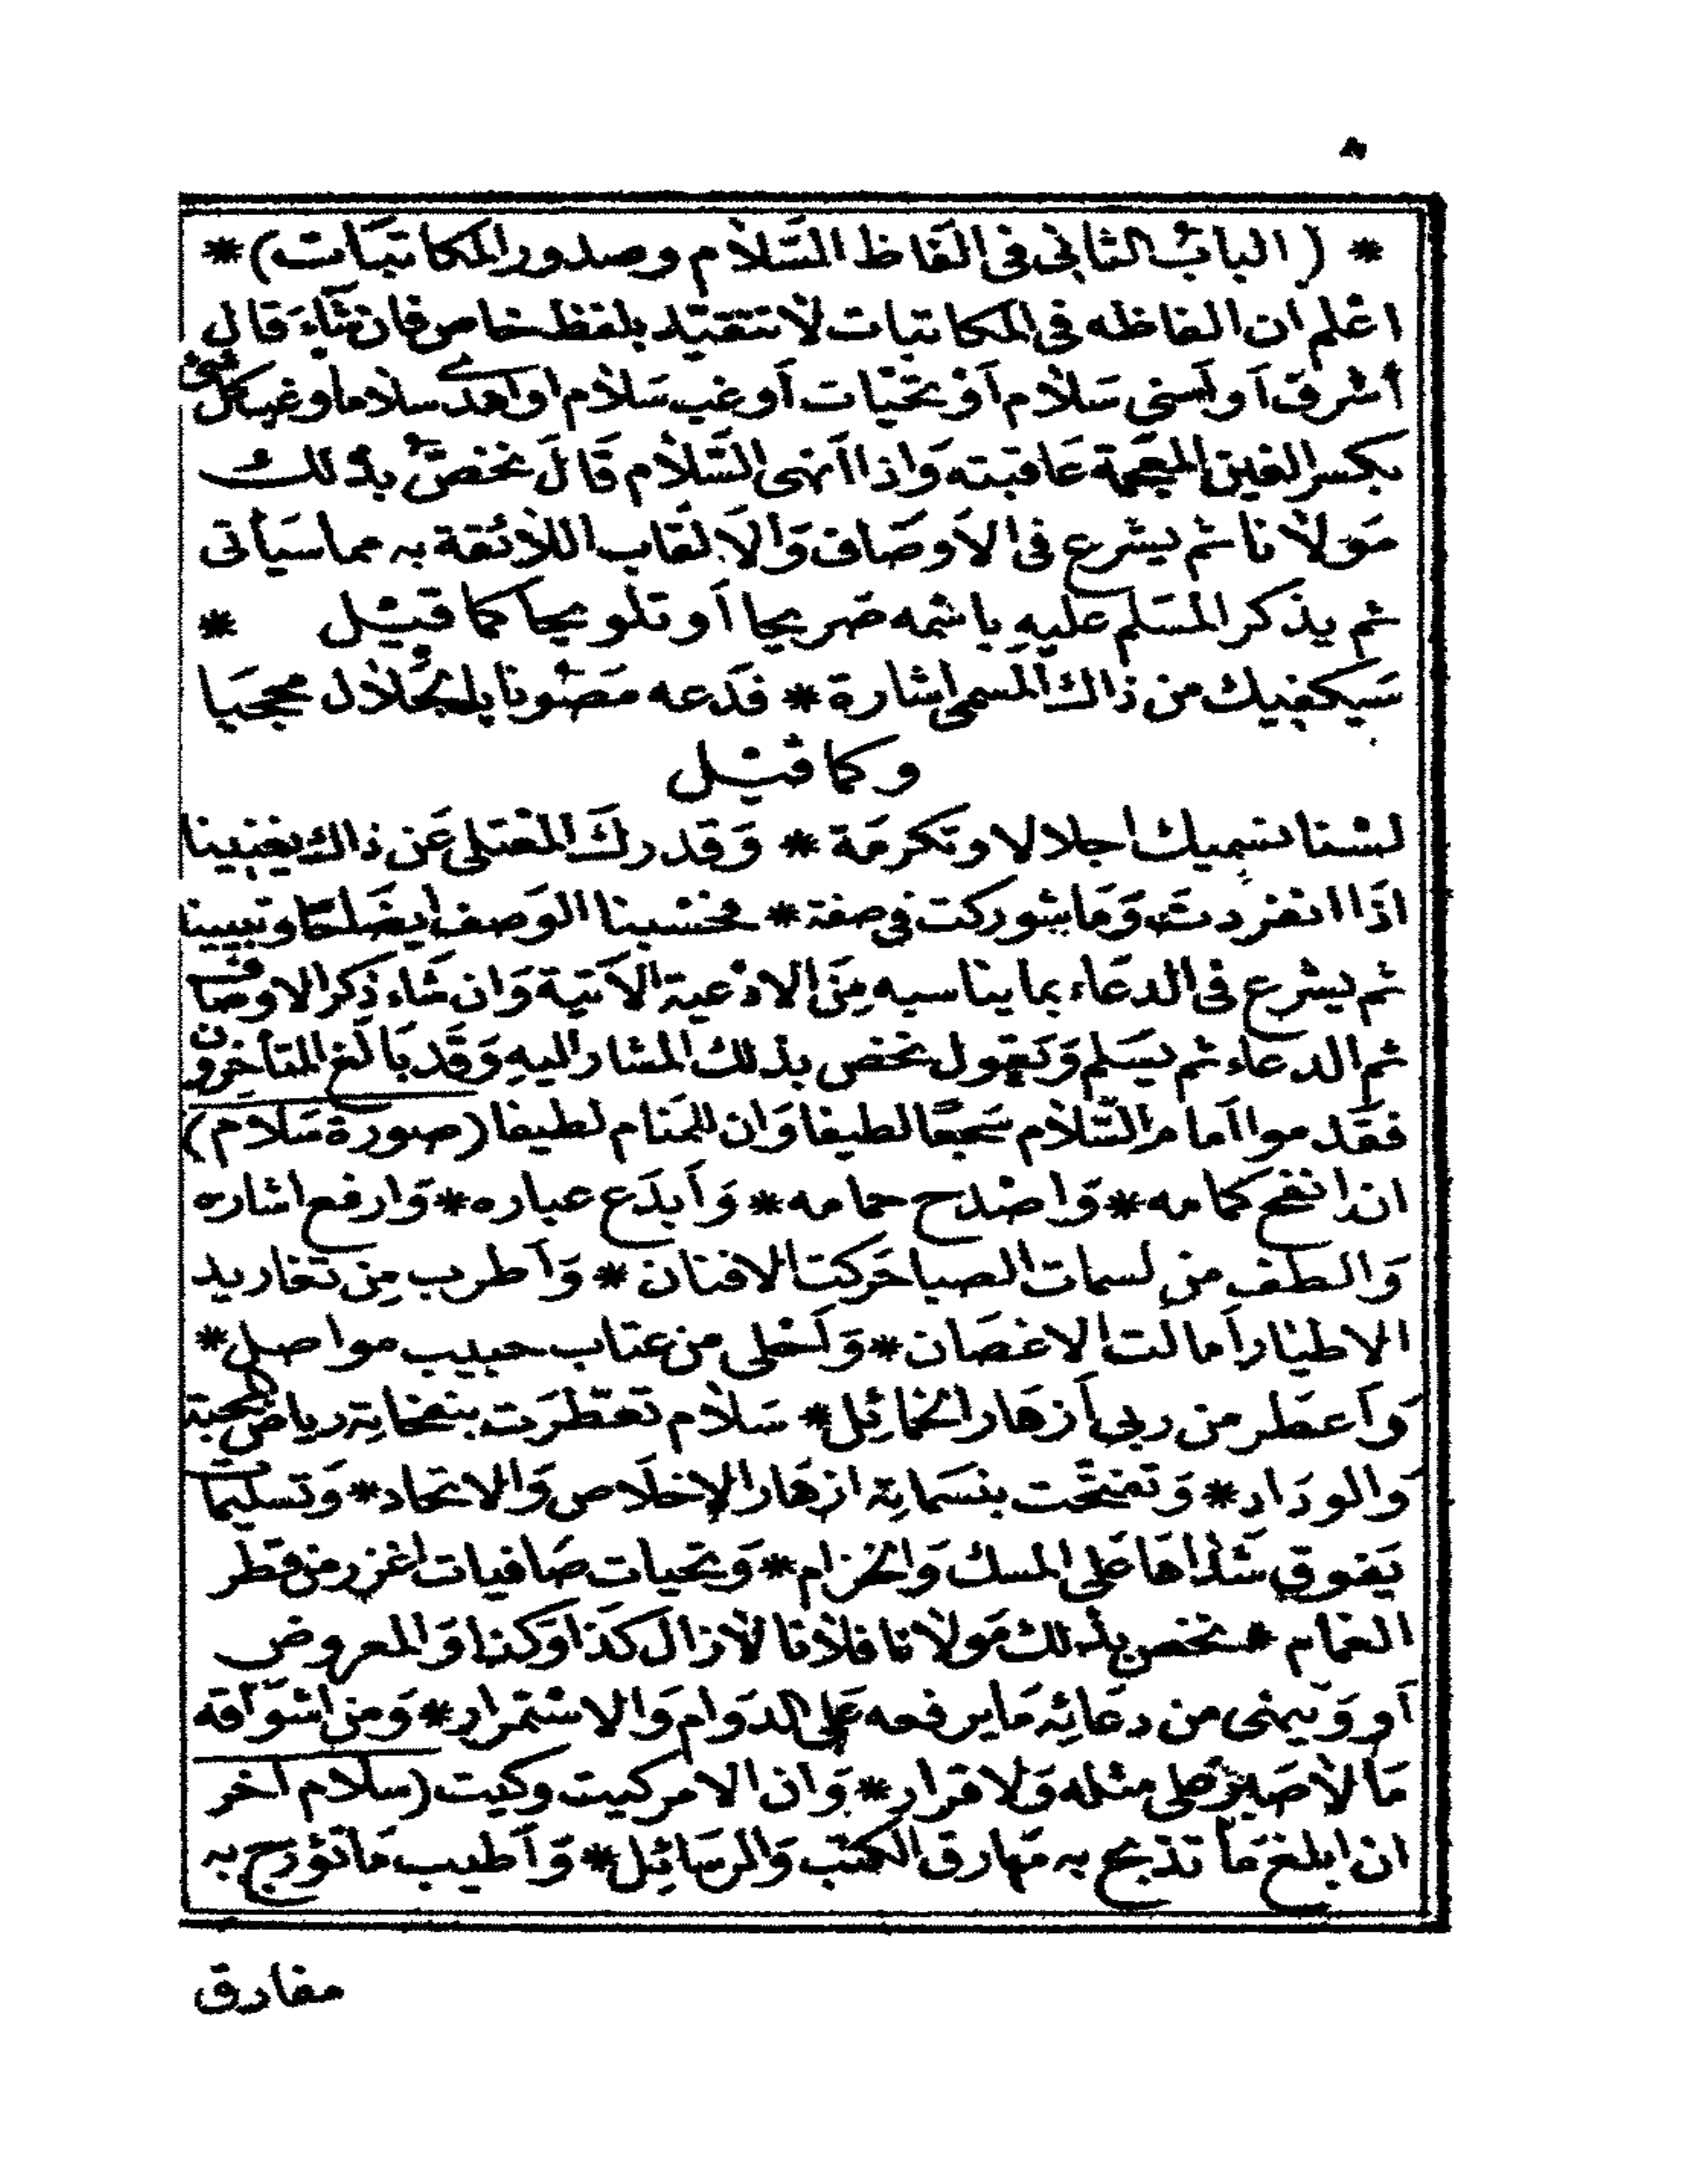 * ( الباب الثاني في الفاظ السَّلام وصدور المكاتبات ) *
اعلم ان الفاظه في المكاتبات لا تتقيّد بلفظ خاص فان شاءَ قال
أشرق أو أسنى سَلام أو تحيّات أو غب سَلام او اهدى سلاما او غب كل شئ
بكسر الغين المعجمة عاقبته وَاذا انهى السَّلام قَالَ نخصّ بذلك
مَولانا ثم يشرع في الاَوصَاف وَالاَلقاب اللائقة به مما سيَأتى
ثم يذكر المسَلم عليهِ باسمه صَريحا أو تلويحا كما قيل *
سَيكفيك من ذاك المسمى اشارة * فدَعه مَصُونا بالجلال محجبَا
وكما قيل
لسْنا نسميك اجلالا وتكرمَة * وَقدرك المعتلى عَن ذاك يغنينا
اذَا انفردتَ وَمَا شوركت في صفة * فحَسْبنا الوَصف ايضَاحًا وتبيينا
ثم يشرع في الدعَاء بما يناسبه مِنَ الادْعية الاَتية وَان شَاء ذكر الاوصاف
ثم الدعاء ثم يسَلم وَيَقول نخص بذلك المشار اليهِ وَقَد بَالغ المتأخرون
فقَدموا اَمام السَّلام سَجعًا لطيفا وَان للمَنام لطيفا (صورة سَلام)
ان انفح كمامه * وَاصْدح حمامه * وَأبدَع عباره * وَارفع اشاره
وَالطف من نسمات الصبا حَركت الافنان * وَاَطرب مِن تغاريد
الاطيَار اَمالت الاغصَان * وَاَحلى من عتاب حبيب مواصل *
وَاَعطر من ربى اَزهَار الخمائِل * سَلام تعَطّرَت بنفحاتِه رياض المحبة
وَالودَاد * وَتفتحَت بنسَماتِه ازهَار الإخلَاص وَالاتحاد * وَتسليمات
يَفوق شَذاهَا عَلى المسك وَالخزام * وَتحيات صَافيات اغزر من قطر
الغمام * نخص بذلك مَولانا فلانا لازال كَذا وَكذا وَالمعروض
أو وَينهى من دعَائِه مَا يرفعه عَلى الدوَام وَالاسْتمرار * وَمن اشوَاقه
مَا لا صَبرَ على مثله وَلا قرار * وَان الامر كيت وكيت (سلام اخر
ان ابلغ مَا تذبج به مَهارق الكتب وَالرسَائِل * وَاَطيب مَا تؤرج به
مفارق